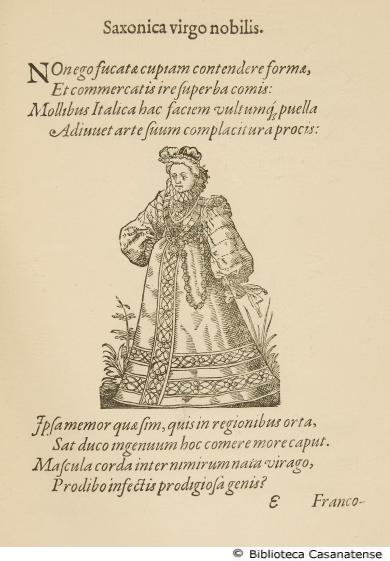 Saxonica virgo nobilis.
NOn ego fucatæ cupiam contendere formæ,
Et commercatis ire superba comis:
Mollibus Italica hac faciem vultumq́; puella
Adiuuet arte suum complacitura procis:
Ipsa memor quæ sim, quis in regionibus orta,
Sat duco ingenuum hoc comere more caput.
Mascula corda inter nimirum nata virago,
Prodibo infectis prodigiosa genis?
ε Franco-
© Biblioteca Casanatense